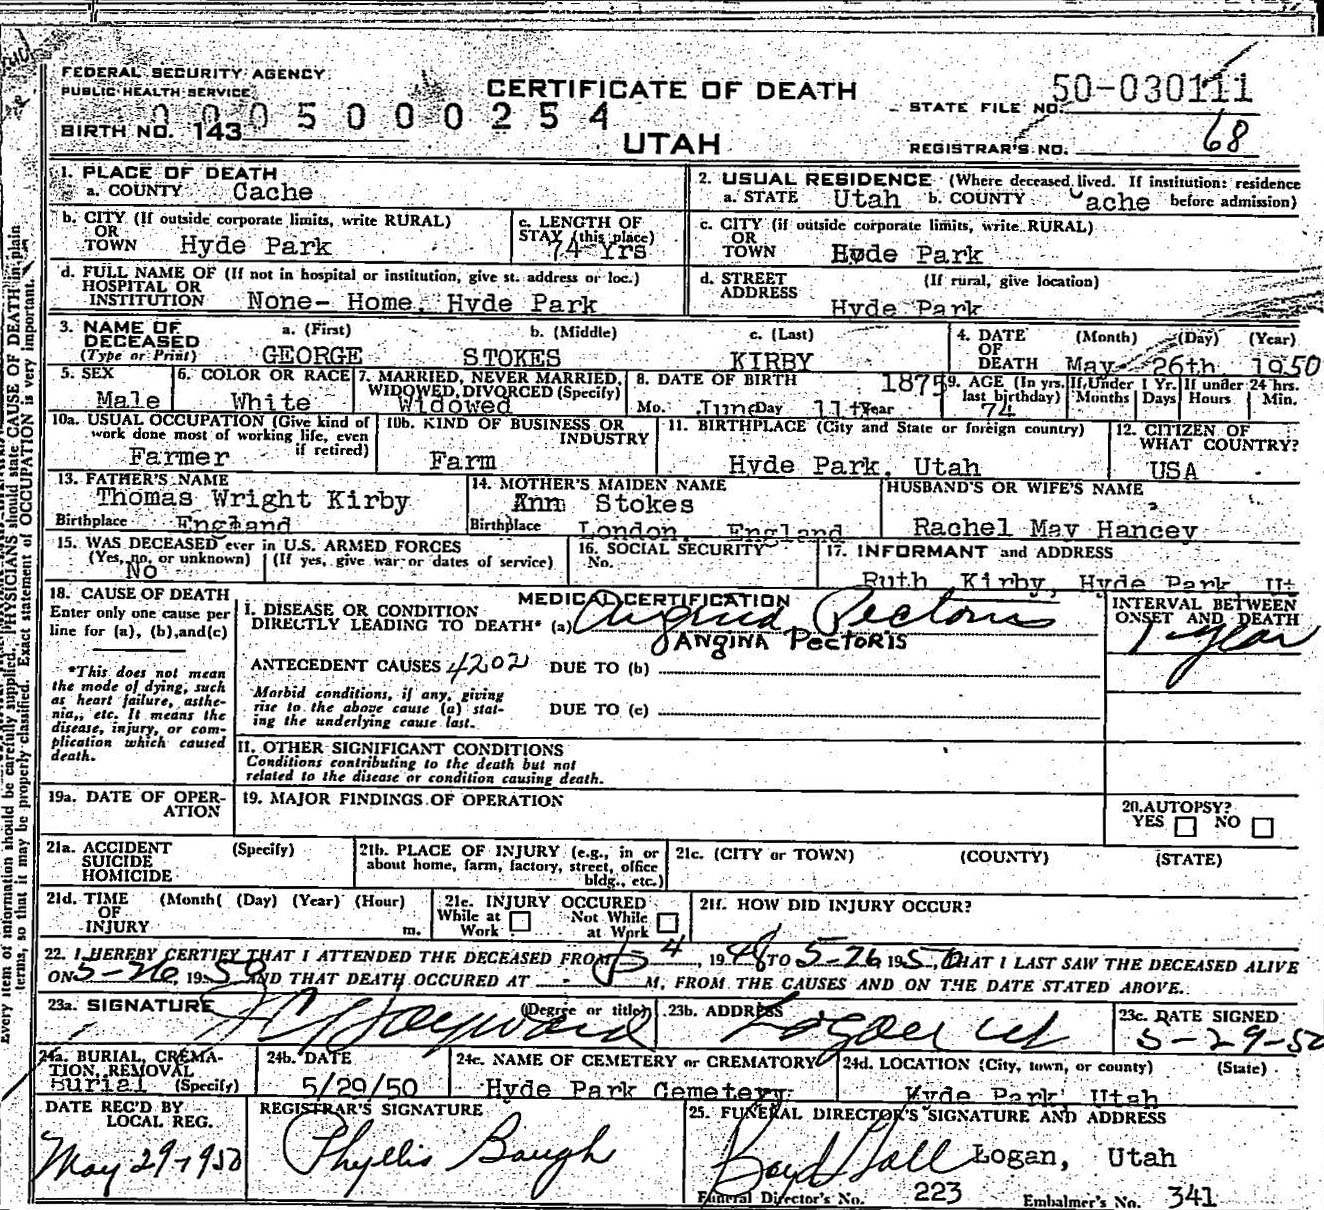 FEDERAL SECURITY AGENCY
PUBLIC HEALTH SERVICE
CERTIFICATE OF DEATH
STATE FILE NO. 50-030111
0005000254
BIRTH NO. 143
UTAH
REGISTRAR'S NO. 68
1. PLACE OF DEATH
a. COUNTY Cache
2. USUAL RESIDENCE (Where deceased lived. If institution: residence
a. STATE Utah b. COUNTY Cache before admission)
b. CITY (If outside corporate limits, write RURAL)
OR
TOWN Hyde Park
c. LENGTH OF
STAY (this place)
74 Yrs
c. CITY (if outside corporate limits, write RURAL)
OR
TOWN Hyde Park
d. FULL NAME OF (If not in hospital or institution, give st. address or loc.)
HOSPITAL OR
INSTITUTION None- Home, Hyde Park
d. STREET (If rural, give location)
ADDRESS
Hyde Park
3. NAME OF a. (First) b. (Middle) c. (Last)
DECEASED
(Type or Print) GEORGE STOKES KIRBY
4. DATE (Month) (Day) (Year)
OF
DEATH May 26th 1950
5. SEX
Male
6. COLOR OR RACE
White
7. MARRIED, NEVER MARRIED,
WIDOWED, DIVORCED (Specify)
Widowed
8. DATE OF BIRTH 1875
Mo. June Day 11th Year
9. AGE (In yrs. last birthday)
74
If Under 1 Yr.
Months Days
If under 24 hrs.
Hours Min.
10a. USUAL OCCUPATION (Give kind of
work done most of working life, even
if retired)
Farmer
10b. KIND OF BUSINESS OR
INDUSTRY
Farm
11. BIRTHPLACE (City and State or foreign country)
Hyde Park, Utah
12. CITIZEN OF
WHAT COUNTRY?
USA
13. FATHER'S NAME
Thomas Wright Kirby
Birthplace England
14. MOTHER'S MAIDEN NAME
Ann Stokes
Birthplace London, England
HUSBAND'S OR WIFE'S NAME
Rachel May Hancey
15. WAS DECEASED ever in U.S. ARMED FORCES
(Yes, no, or unknown) (If yes, give war or dates of service)
No
16. SOCIAL SECURITY
No.
17. INFORMANT and ADDRESS
Ruth Kirby, Hyde Park, Ut
18. CAUSE OF DEATH
Enter only one cause per
line for (a), (b), and (c)
*This does not mean
the mode of dying, such
as heart failure, asthe-
nia,, etc. It means the
disease, injury, or com-
plication which caused
death.
MEDICAL CERTIFICATION
I. DISEASE OR CONDITION
DIRECTLY LEADING TO DEATH* (a) Angina Pectoris
ANGINA PECTORIS
ANTECEDENT CAUSES 4202 DUE TO (b)
Morbid conditions, if any, giving
rise to the above cause (a) stat-
ing the underlying cause last.
DUE TO (c)
INTERVAL BETWEEN
ONSET AND DEATH
1 year
II. OTHER SIGNIFICANT CONDITIONS
Conditions contributing to the death but not
related to the disease or condition causing death.
19a. DATE OF OPER-
ATION
19. MAJOR FINDINGS OF OPERATION
20. AUTOPSY?
YES NO
21a. ACCIDENT (Specify)
SUICIDE
HOMICIDE
21b. PLACE OF INJURY (e.g., in or
about home, farm, factory, street, office
bldg., etc.)
21c. (CITY or TOWN) (COUNTY) (STATE)
21d. TIME (Month( (Day) (Year) (Hour)
OF
INJURY m.
21e. INJURY OCCURED
While at Work
Not While at Work
21f. HOW DID INJURY OCCUR?
22. I HEREBY CERTIFY THAT I ATTENDED THE DECEASED FROM 5-4, 1948 TO 5-26, 1950, THAT I LAST SAW THE DECEASED ALIVE
ON 5-26, 1950 AND THAT DEATH OCCURED AT M, FROM THE CAUSES AND ON THE DATE STATED ABOVE.
23a. SIGNATURE (Degree or title)
Hayward
23b. ADDRESS
Logan Ut
23c. DATE SIGNED
5-29-50
24a. BURIAL, CREMA-
TION, REMOVAL
Burial (Specify)
24b. DATE
5/29/50
24c. NAME OF CEMETERY or CREMATORY
Hyde Park Cemetery
24d. LOCATION (City, town, or county) (State)
Hyde Park, Utah
DATE REC'D BY
LOCAL REG.
May 29-1950
REGISTRAR'S SIGNATURE
Phyllis Baugh
25. FUNERAL DIRECTOR'S SIGNATURE AND ADDRESS
Boyd Hall Logan, Utah
Funeral Director's No. 223 Embalmer's No. 341
Every item of information should be carefully supplied. PHYSICIANS should state CAUSE OF DEATH in plain
terms, so that it may be properly classified. Exact statement of OCCUPATION is very important.